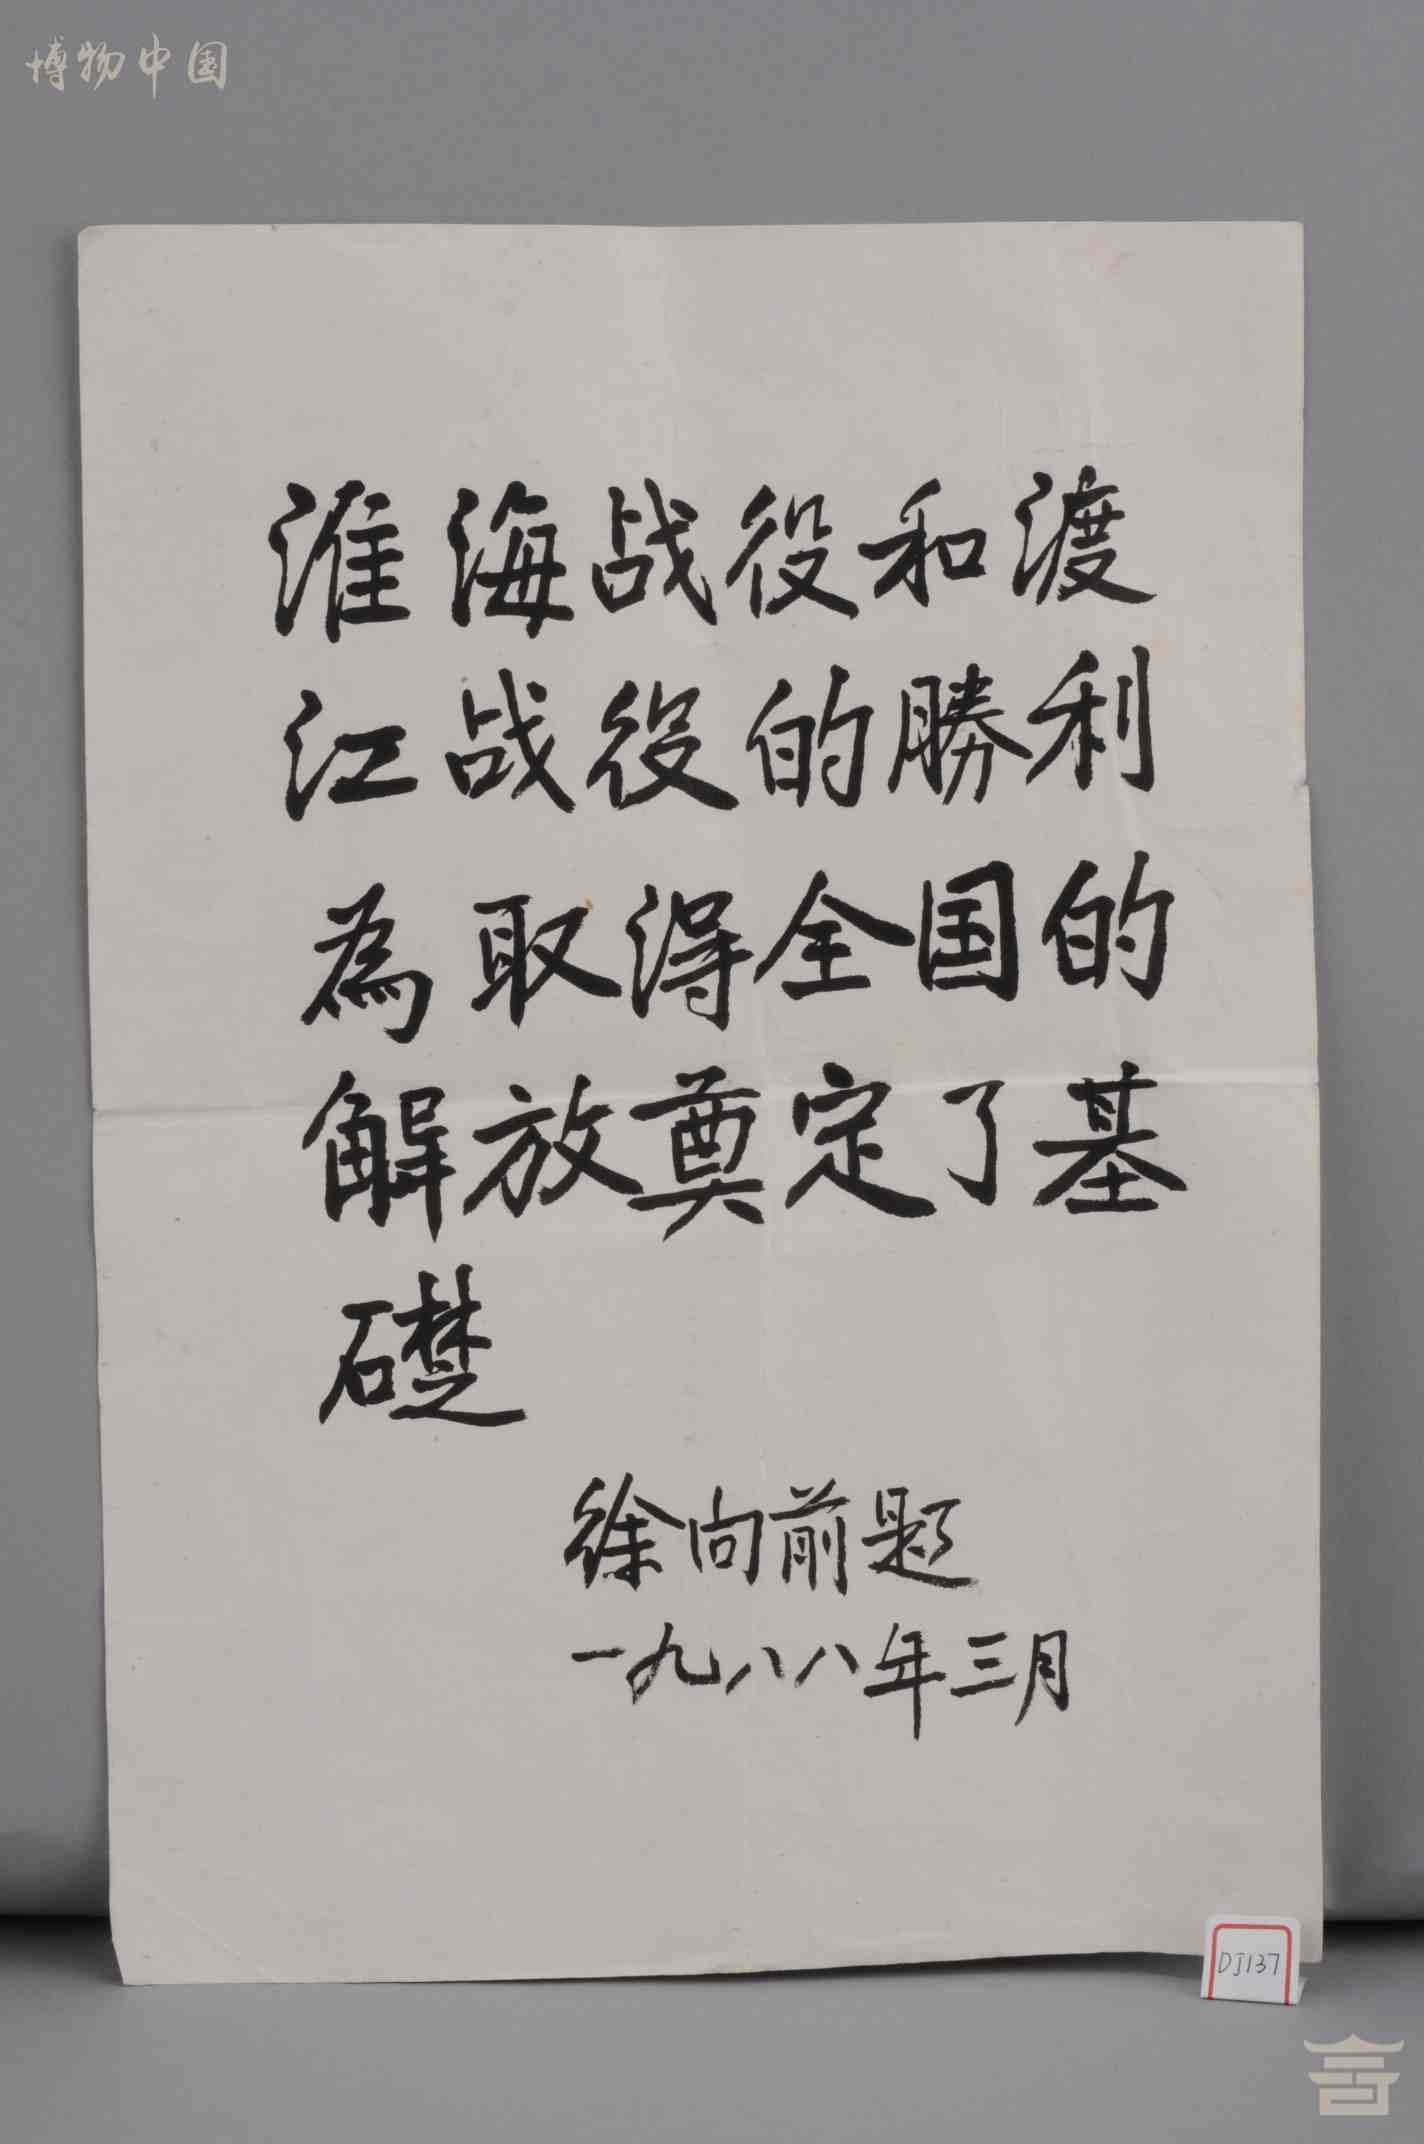 博物中国
淮海战役和渡
江战役的勝利
為取得全国的
解放奠定了基
礎
徐向前题
一九八八年三月
DJ137